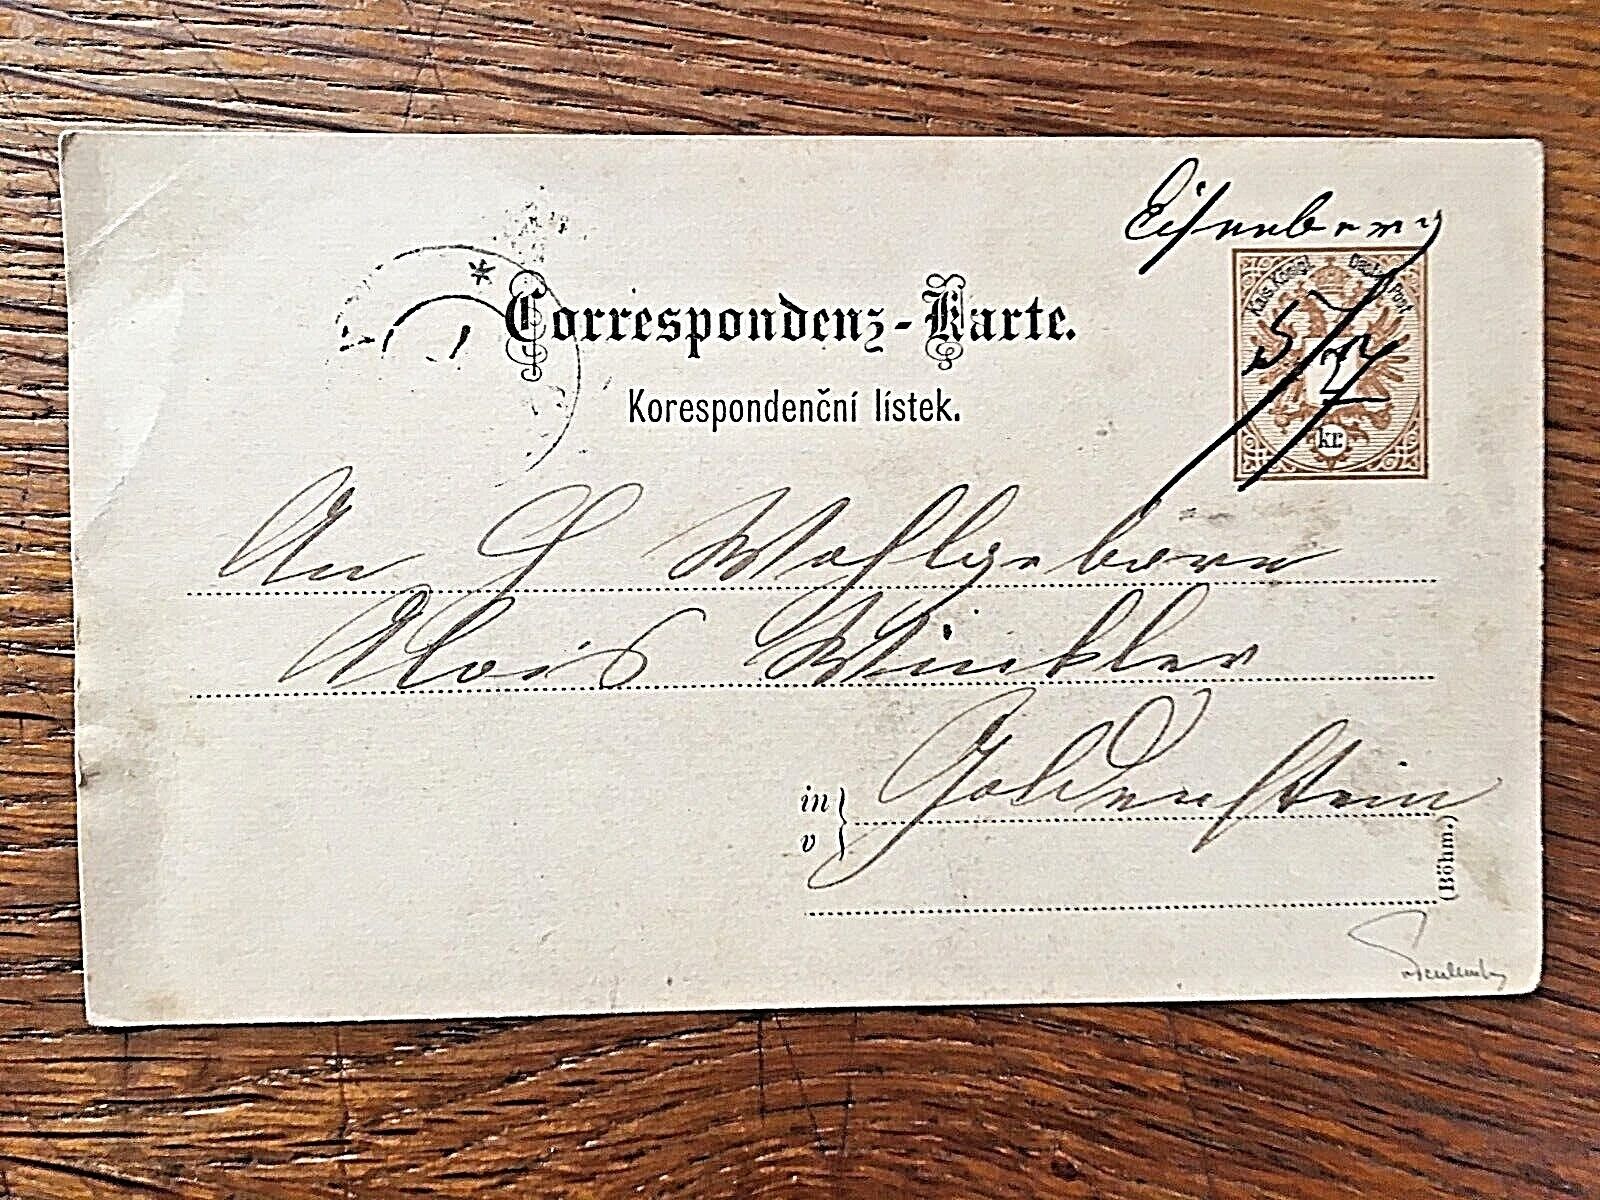 Eisenberg
Kais. Königl. Oesterr. Post
5/7
2
kr.
Correspondenz-Karte.
Korespondenční lístek.
An S Wohlgeboren
Alois Winkler
in
v
Goldenstein
(Böhm.)